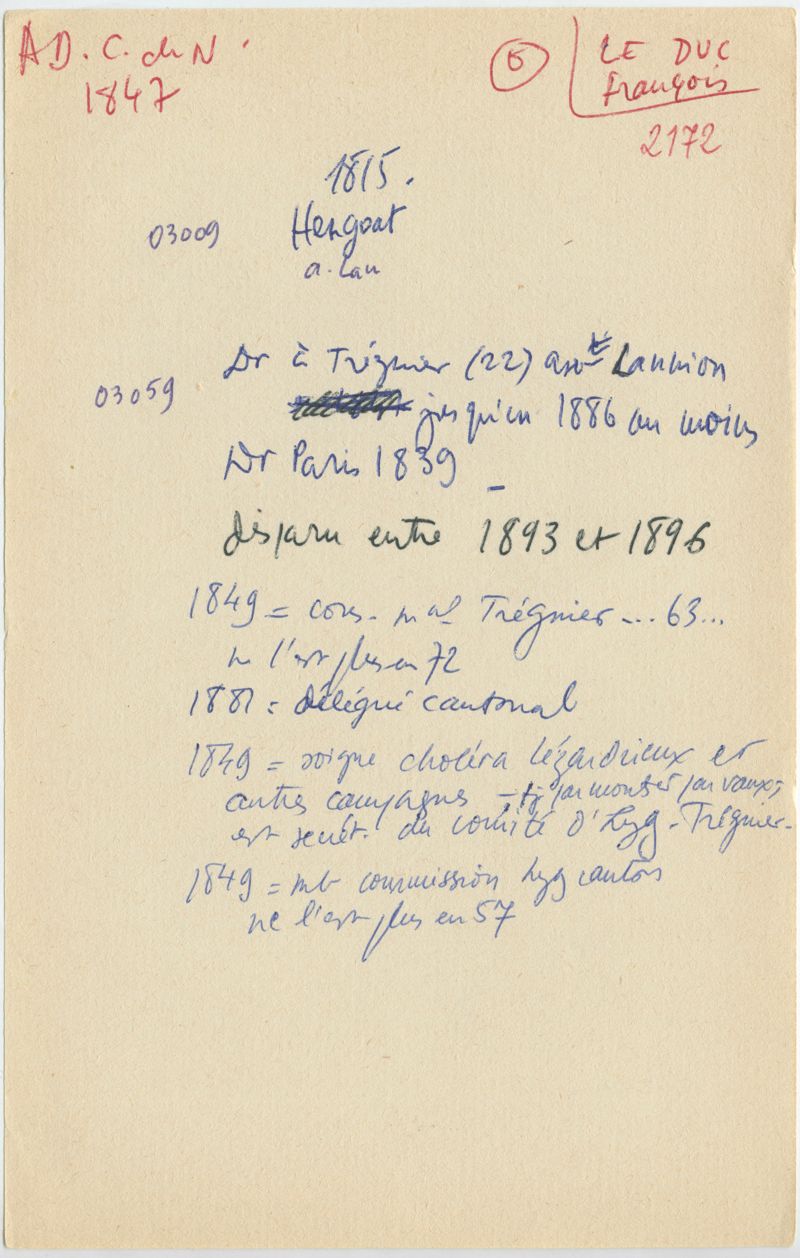 AD. C. du N.
1847
5
LE DUC
François
2172
1815.
03009
Hengoat
a. Lan
03059
Dr à Trégnier (22) arrt Lannion
jusqu'en 1886 au moins
Dr Paris 1839
disparu entre 1893 et 1896
1849 = cons. mal Tréguier ... 63...
ne l'est plus en 72
1881 = délégué cantonal
1849 = soigne choléra Lézardrieux et
autres campagnes - par monts et par vaux,
est secrét. du comité d'hyg. Tréguier.
1849 = mb commission hyg canton
ne l'est plus en 57